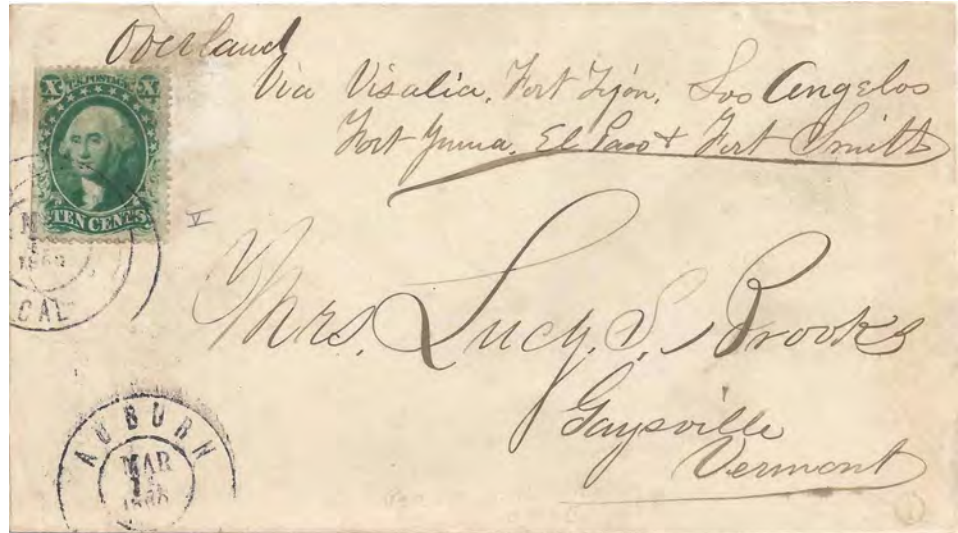 Overland
Via Visalia, Fort Tejón, Los Angelos
Fort Yuma, El Paso & Fort Smith
X U.S. POSTAGE X
TEN CENTS
V
CAL
Mrs. Lucy. S. Brooks
Gaysville
Vermont
AUBURN
MAR